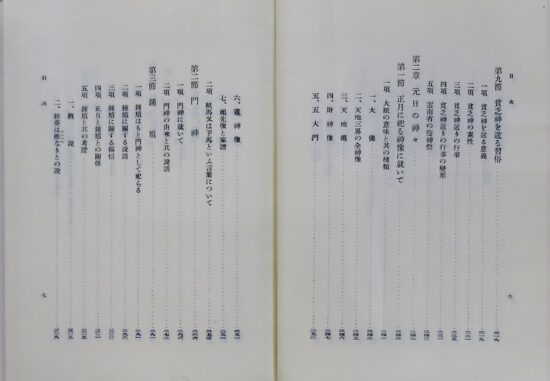 目次
第九節 貧乏神を送る習俗
一項 貧乏神を送る意義
二項 貧乏神の素性
三項 貧乏神送りの行事
四項 貧乏神送りの行事の變形
五項 雲南省の疫神祭
第二章 元日の神々
第一節 正月に祀る神像に就いて
一項 大紙の意味と其の種類
一、大佛
二、天地三界の全神像
三、天地碼
四、財神像
五、五大門
六
六、竈神像
七、祖先像と家譜
二項 紙馬又は甲馬といふ言葉について
第二節 門神
一項 門神に就いて
二項 門神の由來と其の說話
第三節 鍾馗
一項 鍾馗はもと門神として祀らる
二項 鍾馗に關する說話
三項 鍾馗に關する俗信
四項 正月と鍾馗との關係
五項 鍾馗と其の考證
一、概說
二、終葵は椎なりとの說
目次
七